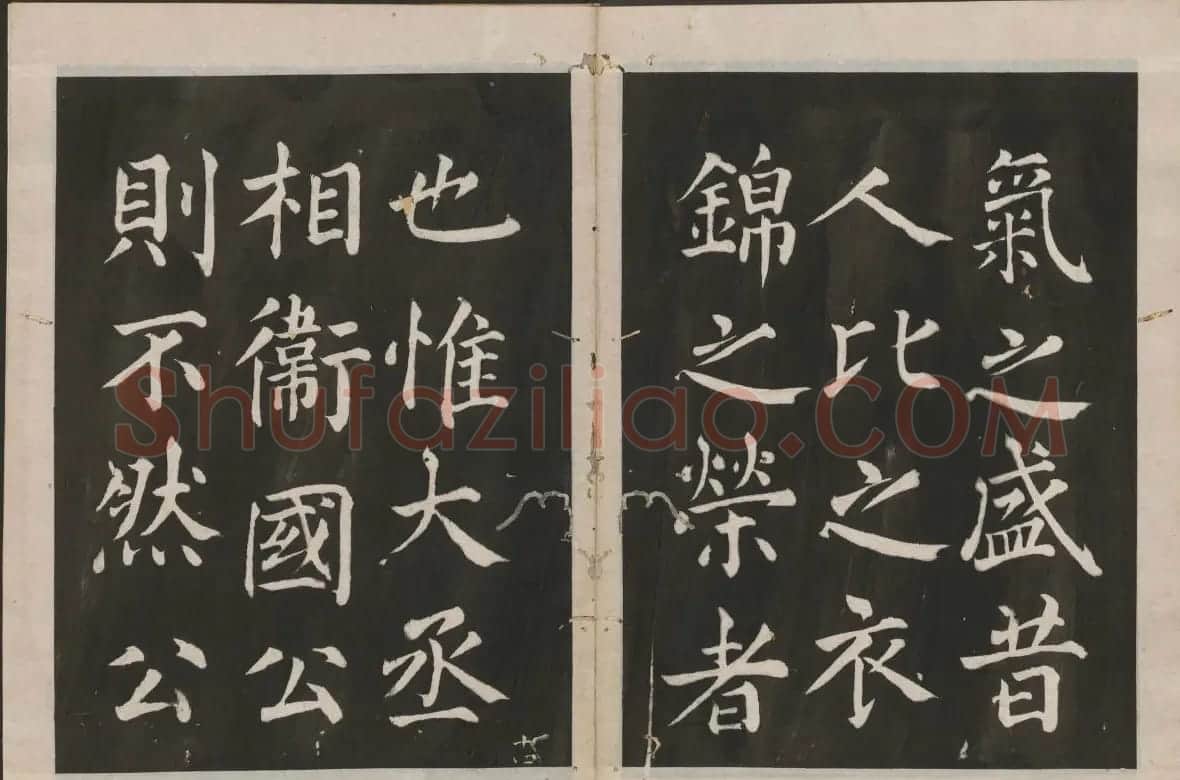 氣之盛昔
人比之衣
錦之榮者
也惟大丞
相衞國公
則不然公
Shufaziliao.COM